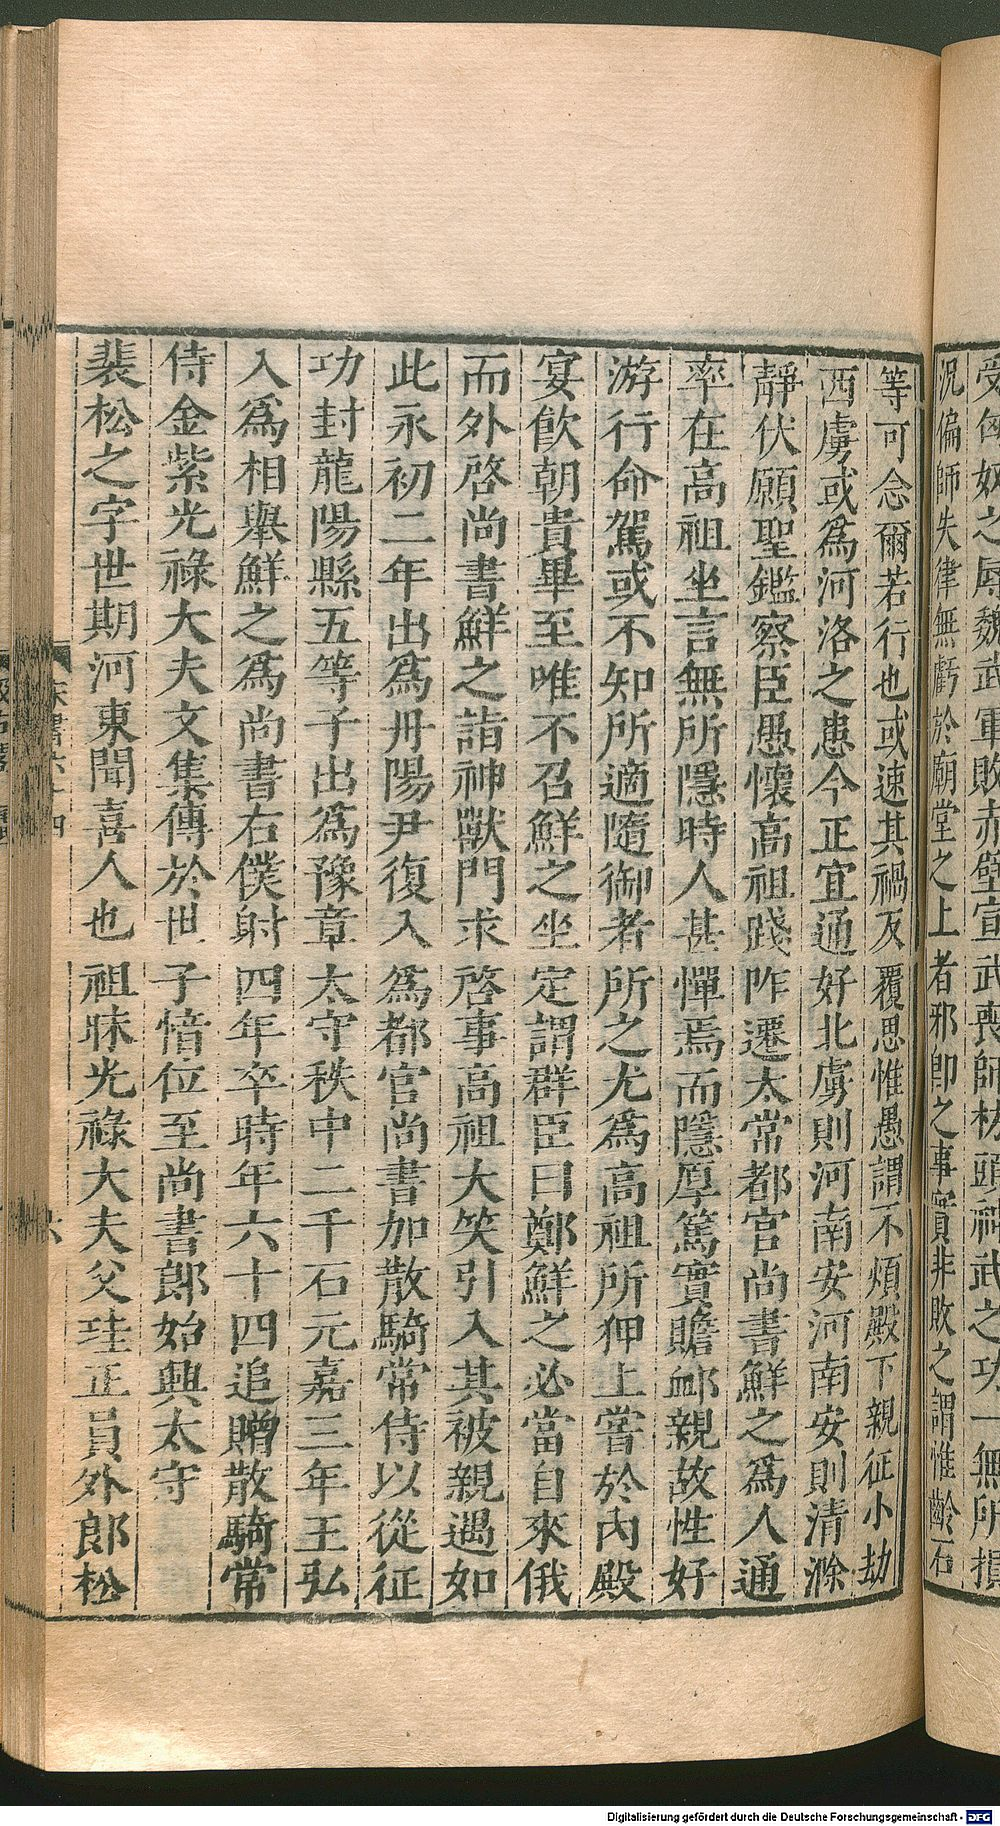 受匈奴之辱魏武軍敗赤壁宣武喪師枋頭神武之功一無所損
況偏師失律無虧於廟堂之上者邪卽之事實非敗之謂惟齡石
等可念爾若行也或速其禍反覆思惟愚謂不煩殿下親征小劫
西虜或爲河洛之患今正宜通好北虜則河南安河南安則清滁
靜伏願聖鑑察臣愚懷高祖踐阼遷太常都官尚書鮮之爲人通
率在高祖坐言無所隱時人甚憚焉而隱厚篤實贍䘏親故性好
游行命駕或不知所適隨御者所之尤爲高祖所狎上嘗於內殿
宴飮朝貴畢至唯不召鮮之坐定謂群臣曰鄭鮮之必當自來俄
而外啓尚書鮮之詣神獸門求啓事高祖大笑引入其被親遇如
此永初二年出爲丹陽尹復入爲都官尚書加散騎常侍以從征
功封龍陽縣五等子出爲豫章太守秩中二千石元嘉三年王弘
入爲相舉鮮之爲尚書右僕射四年卒時年六十四追贈散騎常
侍金紫光祿大夫文集傳於世子愔位至尚書郎始興太守
裴松之字世期河東聞喜人也祖昧光祿大夫父珪正員外郎松
宋書六十四
六
Digitalisierung gefördert durch die Deutsche Forschungsgemeinschaft - DFG